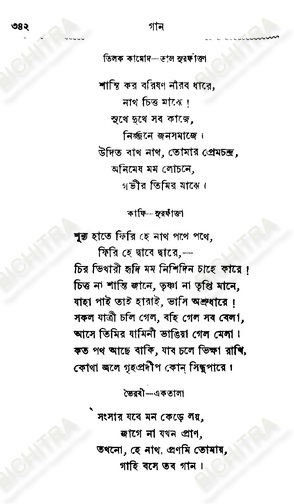 ৩৪২ গান
তিলক কামোদ—তাল সুরফাঁক্তা
শান্তি কর বরিষণ নীরব ধারে,
নাথ চিত্ত মাঝে !
সুখে দুখে সব কাজে,
নির্জ্জনে জনসমাজে ।
উদিত রাখ নাথ, তোমার প্রেমচন্দ্র,
অনিমেষ মম লোচনে,
গভীর তিমির মাঝে ।
কাফি—সুরফাঁক্তা
শূন্য হাতে ফিরি হে নাথ পথে পথে,
ফিরি হে দ্বারে দ্বারে,—
চির ভিখারী হৃদি মম নিশিদিন চাহে কারে !
চিত্ত না শান্তি জানে, তৃষ্ণা না তৃপ্তি মানে,
যাহা পাই তাই হারাই, ভাসি অশ্রুধারে !
সকল যাত্রী চলি গেল, বহি গেল সব বেলা,
আসে তিমির যামিনী ভাঙিয়া গেল মেলা ।
কত পথ আছে বাকি, যাব চলে ভিক্ষা রাখি,
কোথা জ্বলে গৃহপ্রদীপ কোন্ সিন্ধুপারে ।
ভৈরবী—একতালা
সংসার যবে মন কেড়ে লয়,
জাগে না যখন প্রাণ,
তখনো, হে নাথ, প্রণমি তোমায়,
গাহি বসে তব গান ।
BICHITRA